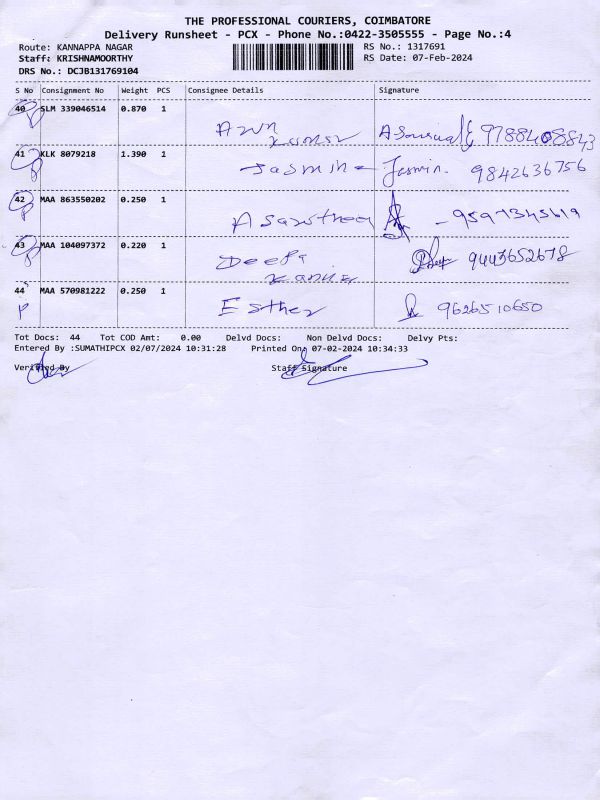 THE PROFESSIONAL COURIERS, COIMBATORE
Delivery Runsheet - PCX - Phone No.:0422-3505555 - Page No.:4
Route: KANNAPPA NAGAR RS No.: 1317691
Staff: KRISHNAMOORTHY RS Date: 07-Feb-2024
DRS No.: DCJB131769104
S No Consignment No Weight PCS Consignee Details Signature
40 SLM 339046514 0.870 1
Kumar
41 KLK 8079218 1.390 1
Jasmine Jasmin. 9842636756
42 MAA 863550202 0.250 1
43 MAA 104097372 0.220 1
Deepa 9443652678
44 MAA 570981222 0.250 1
Esther 9626510650
Tot Docs: 44 Tot COD Amt: 0.00 Delvd Docs: Non Delvd Docs: Delvy Pts:
Entered By :SUMATHIPCX 02/07/2024 10:31:28 Printed On: 07-02-2024 10:34:33
Verified By Staff Signature